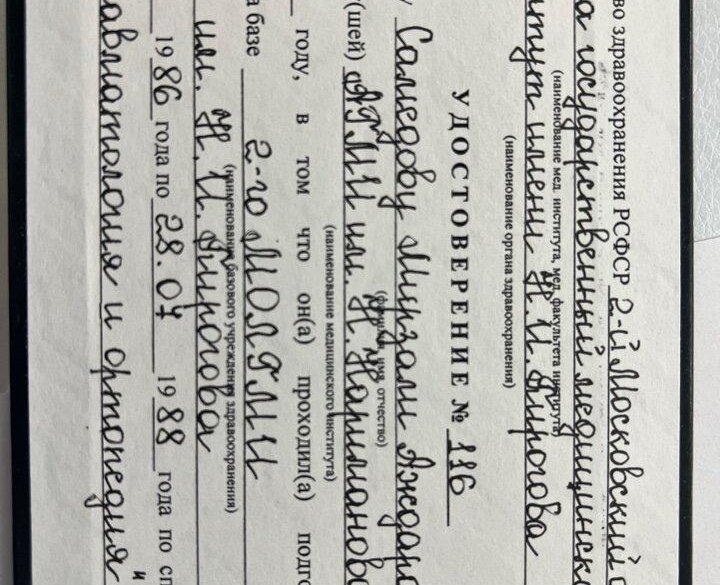 во здравоохранения РСФСР 2-й Московский
(наименование мед. института, мед. факультета института)
а государственный медицинск
тут имени Н. И. Пирогова
(наименование органа здравоохранения)
УДОСТОВЕРЕНИЕ № 116
Самедову Мирзали Аждаро
(фамилия имя отчество)
(шей) АГМИ им. Н. Нариманова
(наименование медицинского института)
году, в том что он(а) проходил(а) подго
а базе 2-го МОЛГМИ
(наименование базового учреждения здравоохранения)
им. Н. И. Пирогова
1986 года по 28.07 1988 года по сп
авматология и ортопедия